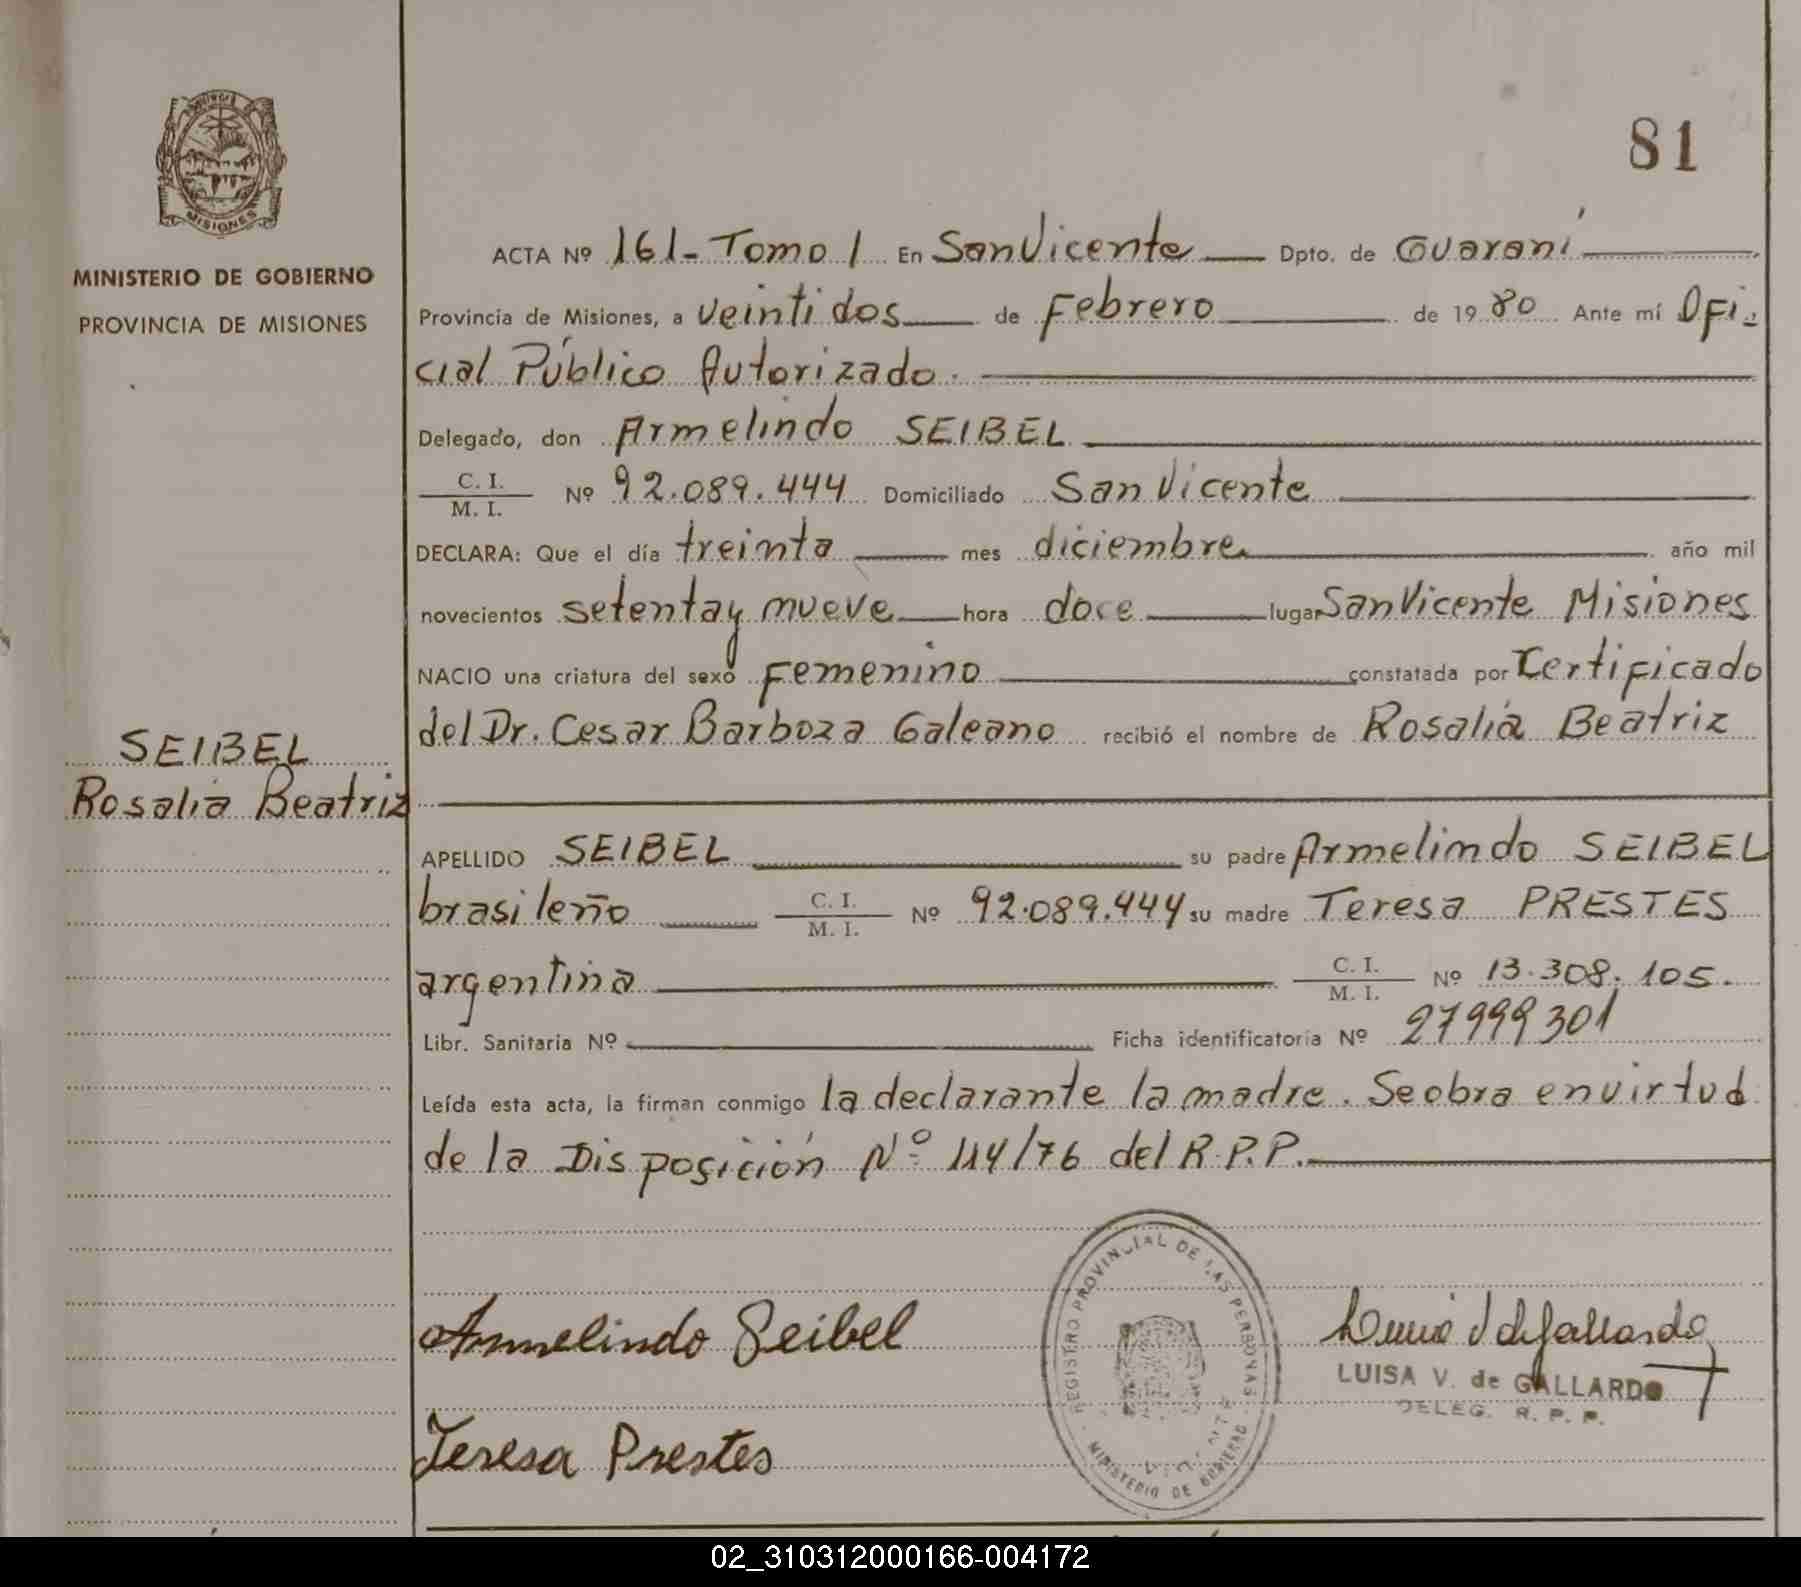 MISIONES
MINISTERIO DE GOBIERNO
PROVINCIA DE MISIONES
81
ACTA Nº 161-Tomo 1 En San Vicente Dpto. de Guaraní
Provincia de Misiones, a veintidos de Febrero de 1980 Ante mí Ofi-
cial Público Autorizado.
Delegado, don Armelindo SEIBEL
C. I.
M. I. Nº 92.089.444 Domiciliado San Vicente
DECLARA: Que el día treinta mes diciembre año mil
novecientos setenta y nueve hora doce lugar San Vicente Misiones
NACIO una criatura del sexo Femenino constatada por Certificado
del Dr. Cesar Barboza Galeano recibió el nombre de Rosalía Beatriz
SEIBEL
Rosalia Beatriz
APELLIDO SEIBEL su padre Armelindo SEIBEL
brasileño C. I.
M. I. Nº 92.089.444 su madre Teresa PRESTES
argentina C. I.
M. I. Nº 13.308.105.
Libr. Sanitaria Nº Ficha identificatoria Nº 27999301
Leída esta acta, la firman conmigo la declarante la madre. Se obra en virtud
de la Disposición Nº 114/76 del R.P.P.
Armelindo Seibel
REGISTRO PROVINCIAL DE LAS PERSONAS
MINISTERIO DE GOBIERNO
LUISA V. de GALLARDO
DELEG. R. P. P.
Teresa Prestes
02_310312000166-004172